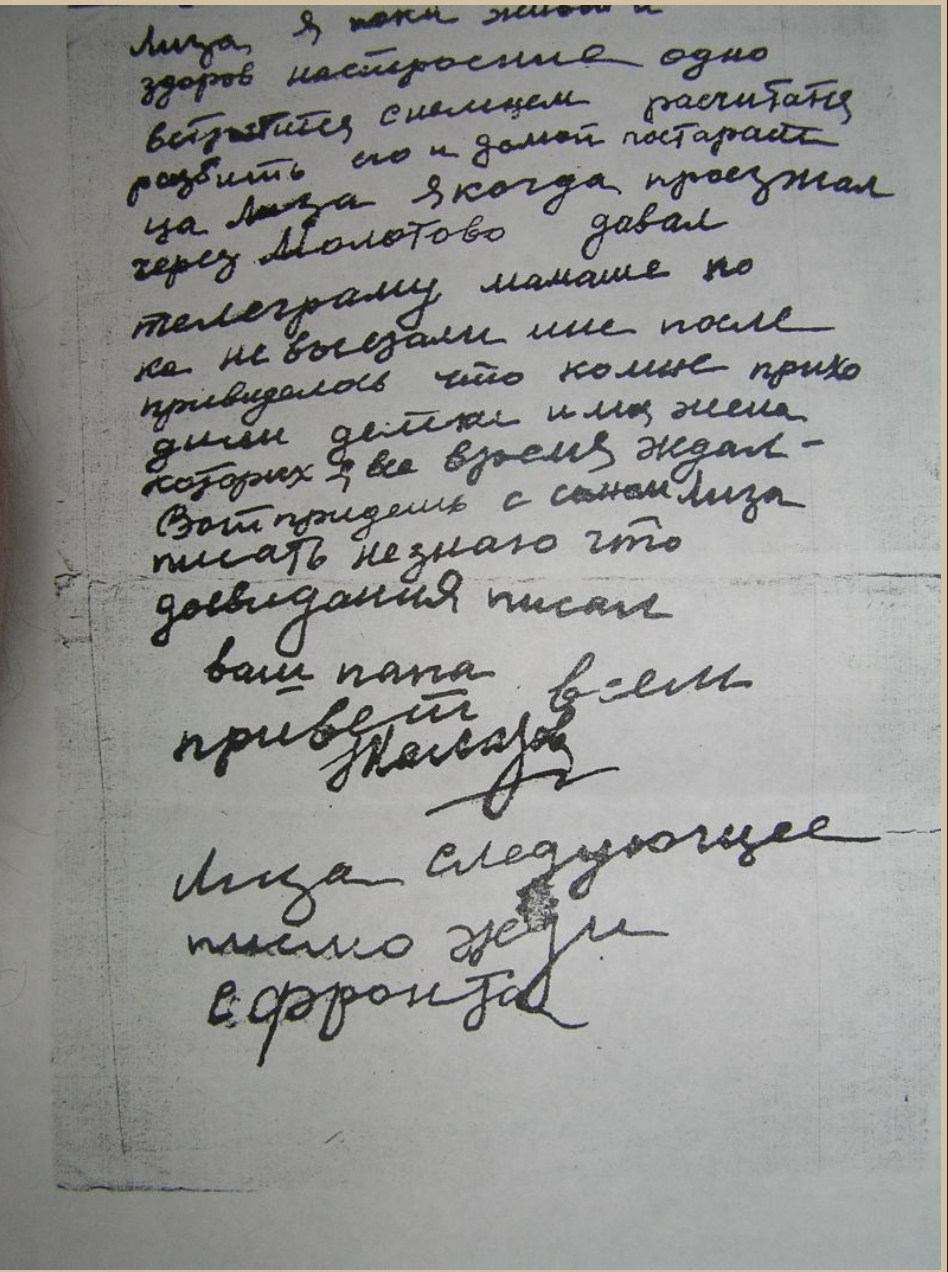 Лиза, я пока живой и
здоров настроение одно
встретится с немцем расчитатся
разбить его и домой постараит
ца Лиза я когда проезжал
через Молотово давал
телеграму мамаше по
ка не выезжали мне после
привиделось что комне прихо
дили детки и моя жена
которих я все время ждал -
Вот придешь с сыном Лиза
писать незнаю что
досвидания писал
ваш папа
привет всем
Лиза следующее
писмо жди
с фронта